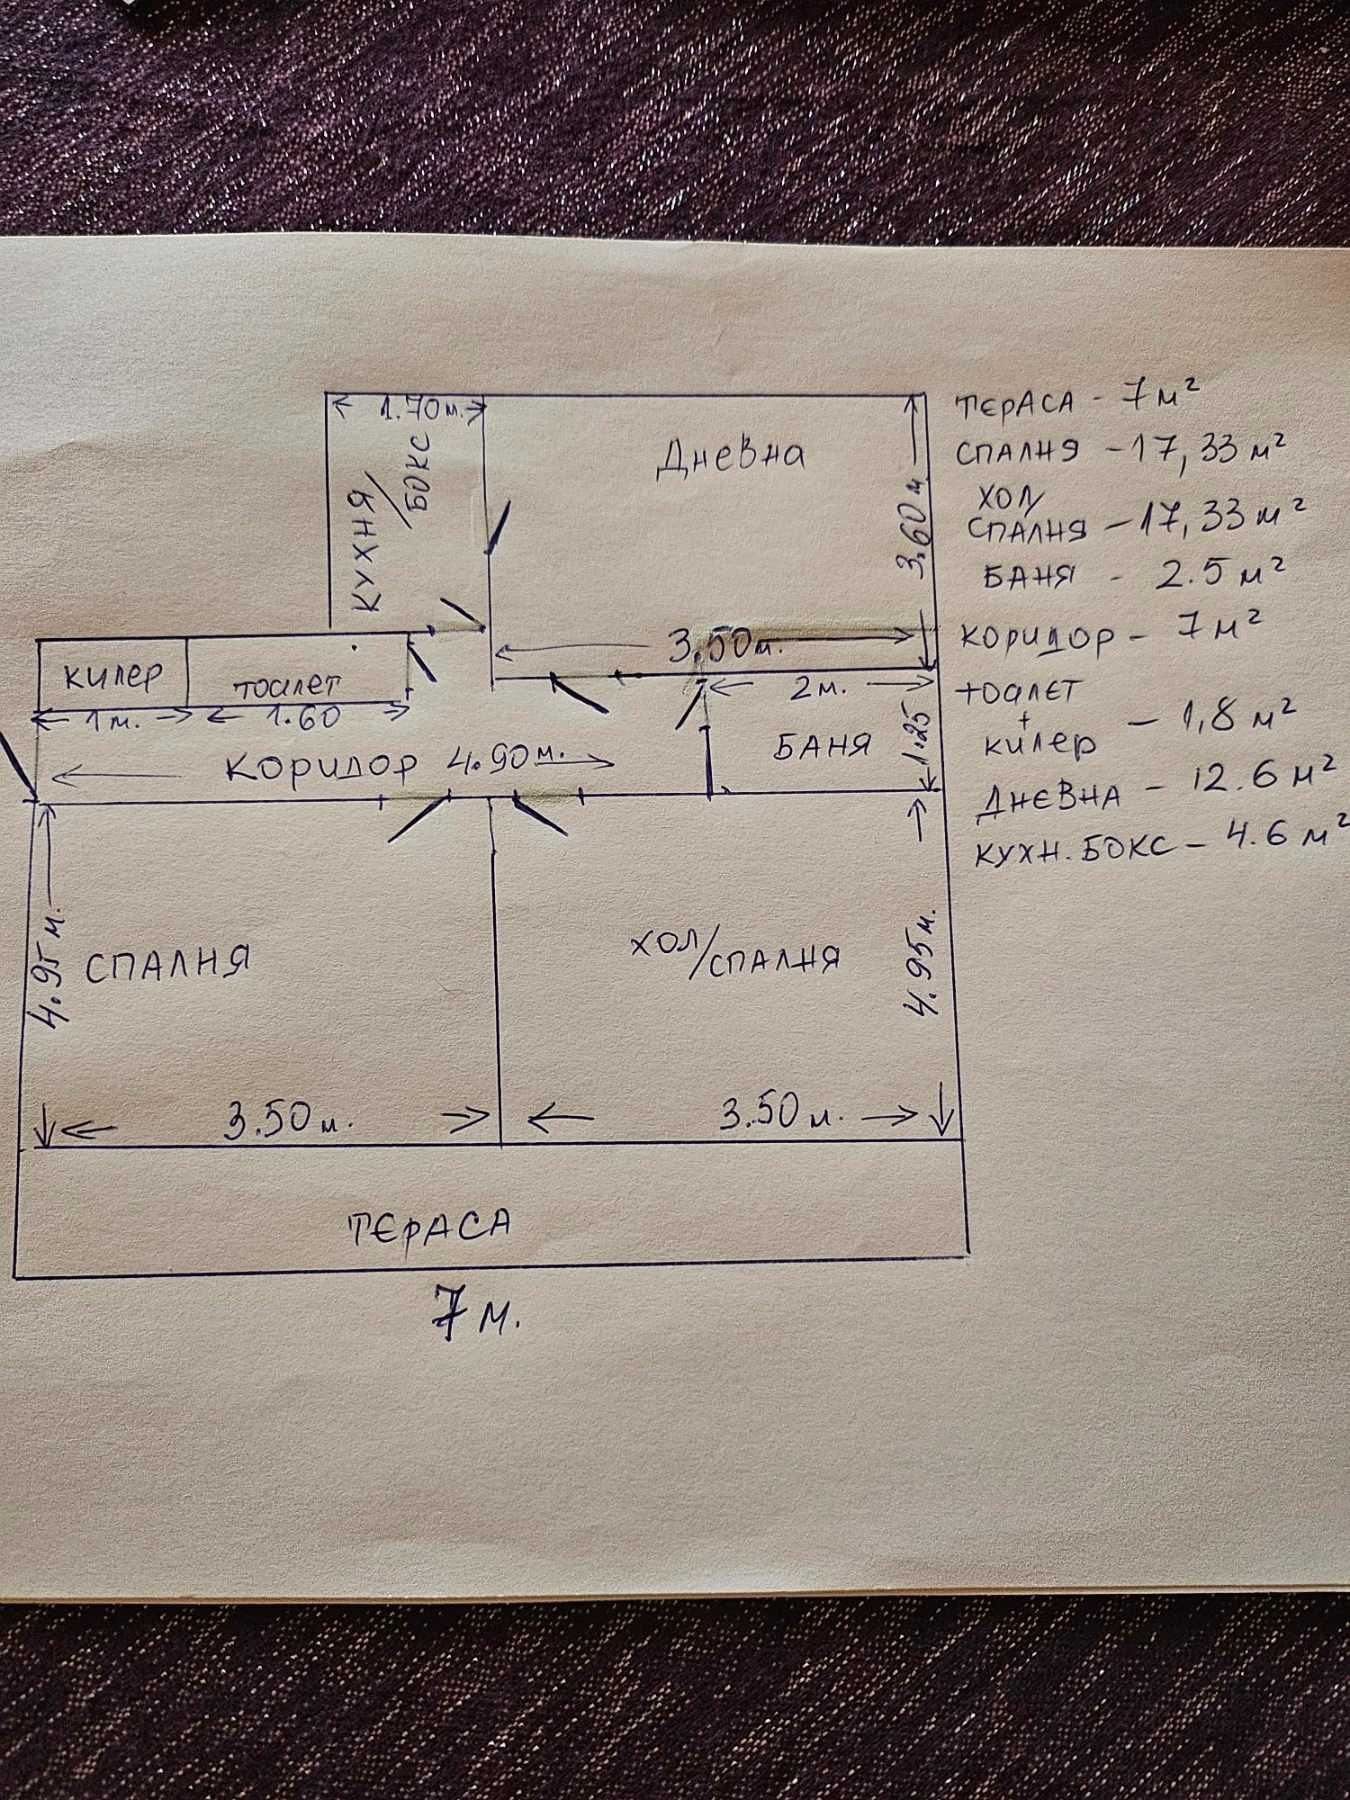 1.70 м.
КУХНЯ/
БОКС
Дневна
3.60 м
3.50 м.
килер
тоалет
1 м.
1.60
2 м.
БАНЯ
1.25
Коридор 4.90 м.
4.95 м.
СПАЛНЯ
ХОЛ/
СПАЛНЯ
4.95 м.
3.50 м.
3.50 м.
ТЕРАСА
7 м.
ТЕРАСА - 7 м²
СПАЛНЯ - 17,33 м²
ХОЛ/
СПАЛНЯ - 17,33 м²
БАНЯ - 2.5 м²
КОРИДОР - 7 м²
тоалет
+
килер - 1,8 м²
ДНЕВНА - 12.6 м²
КУХН. БОКС - 4.6 м²